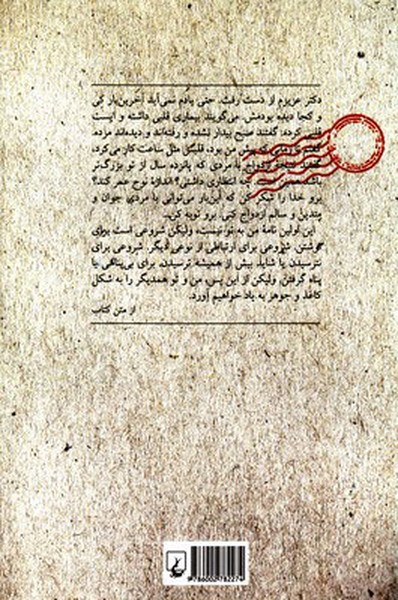 دکتر عزیزم از دست رفت. حتی یادم نمی‌آید آخرین‌بار کی
و کجا دیده بودمش. می‌گویند بیماری قلبی داشته و ایست
قلبی کرده؛ گفتند صبح بیدار نشده و رفته‌اند و دیده‌اند مرده.
گفتم تا زمانی که پیش من بود، قلبش مثل ساعت کار می‌کرد.
گفتند نتیجهٔ ازدواج با مردی که پانزده سال از تو بزرگ‌تر
باشد همین است. چه انتظاری داشتی؟ اندازهٔ نوح عمر کند؟
برو خدا را شکر کن که این‌بار می‌توانی با مردی جوان و
متدین و سالم ازدواج کنی. برو توبه کن.
این اولین نامهٔ من به تو نیست، ولیکن شروعی است برای
نوشتن. شروعی برای ارتباطی از نوعی دیگر. شروعی برای
نترسیدن یا شاید بیش از همیشه ترسیدن. برای بی‌پناهی یا
پناه گرفتن. ولیکن از این پس، من و تو همدیگر را به شکل
کاغذ و جوهر به یاد خواهیم آورد.
از متن کتاب
9 786002 782274